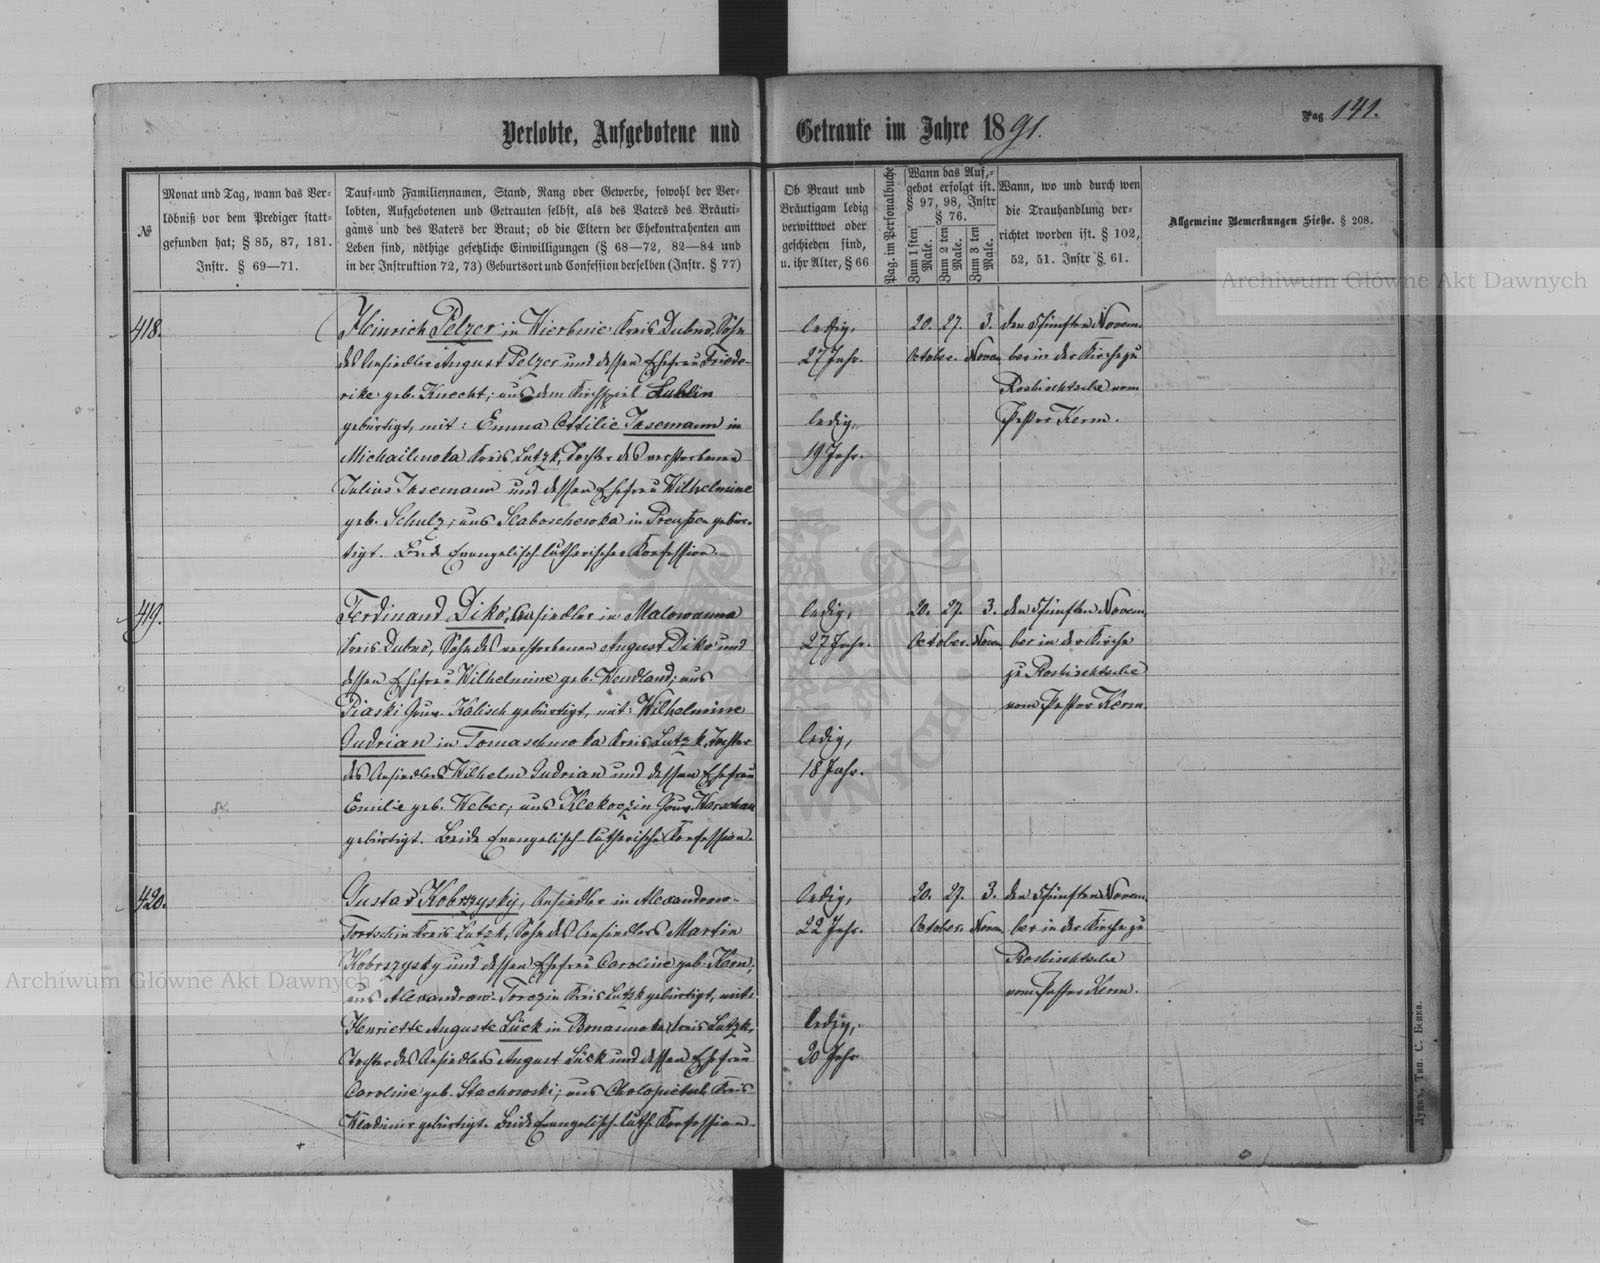 Verlobte, Aufgebotene und Getraute im Jahre 1891.
Pag 141.
№
Monat und Tag, wann das Ver-
löbniß vor dem Prediger statt-
gefunden hat; § 85, 87, 181.
Instr. § 69—71.
Tauf- und Familiennamen, Stand, Rang oder Gewerbe, sowohl der Ver-
lobten, Aufgebotenen und Getrauten selbst, als des Vaters des Bräuti-
gams und des Vaters der Braut; ob die Eltern der Ehekontrahenten am
Leben sind, nöthige gesetzliche Einwilligungen (§ 68—72, 82—84 und
in der Instruktion 72, 73) Geburtsort und Confession derselben (Instr. § 77)
Ob Braut und
Bräutigam ledig
verwittwet oder
geschieden sind,
u. ihr Alter, § 66
Pag. im Personalbuche
Wann das Auf-
gebot erfolgt ist.
§ 97, 98, Instr
§ 76.
Zum 1 sten Male.
Zum 2 ten Male.
Zum 3 ten Male.
Wann, wo und durch wen
die Trauhandlung ver-
richtet worden ist. § 102,
52, 51. Instr § 61.
Allgemeine Bemerkungen Siehe. § 208.
418.
Heinrich Pelzer in Wierbnie Kreis Dubno, Sohn
des Ansiedlers August Pelzer und dessen Ehefrau Friede-
rike geb. Knecht; aus dem Kirchspiel Lublin
gebürtigt, mit: Emma Ottilie Tasemann in
Michailowka Kreis Lutzk, Tochter des verstorbenen
Julius Tasemann und dessen Ehefrau Wilhelmine
geb. Schulz; aus Slaboschewka in Preußen gebür-
tigt. Beide Evangelisch-lutherischer Konfession.
ledig,
27 Jahr.
ledig,
19 Jahr.
20. 27. 3.
October. Novem
den Fünften Novem-
ber in der Kirche zu
Roshischtsche vom
Pastor Kerm.
419.
Ferdinand Diko, Ansiedler in Malowanna
Kreis Dubno, Sohn des verstorbenen August Diko und
dessen Ehefrau Wilhelmine geb. Wendland; aus
Piaski Gouv. Kalisch gebürtigt, mit: Wilhelmine
Gudrian in Tomaschowka Kreis Lutzk, Tochter
des Ansiedlers Wilhelm Gudrian und dessen Ehefrau
Emilie geb. Weber; aus Klekoczin Gouv. Warschau
gebürtigt. Beide Evangelisch-lutherischer Konfession.
ledig,
27 Jahr.
ledig,
18 Jahr.
20. 27. 3.
October. Novem
den Fünften Novem-
ber in der Kirche
zu Roshischtsche
vom Pastor Kerm
420.
Gustav Kobrzysky, Ansiedler in Alexandrow-
Tortschin Kreis Lutzk, Sohn des Ansiedlers Martin
Kobrzysky und dessen Ehefrau Caroline geb. Kern;
aus Alexandrow-Torczin Kreis Lutzk gebürtigt, mit:
Henriette Auguste Lück in Bonasuwka Kreis Lutzk,
Tochter des Ansiedlers August Lück und dessen Ehefrau
Caroline geb. Stachowski; aus Cholopietsch Kreis
Wladimir gebürtigt. Beide Evangelisch-luth. Konfession.
ledig,
22 Jahr.
ledig,
20 Jahr
20. 27. 3.
October. Novem
den Fünften Novem-
ber in der Kirche zu
Roshischtsche
vom Pastor Kerm.
Луцкъ, Тип. С. Бонка.
Archiwum Główne Akt Dawnych
Archiwum Główne Akt Dawnych